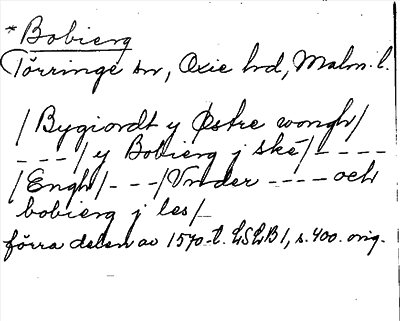 *Bobierg
Törringe sn, Oxie hd, Malm. l.
/Bygiordt y Østre wongh/
---/y Bobierg j ské/----
/Engh/---/Vnder ---- och
bobierg j les/
förra delen av 1570-t. LSLB 1, s. 400. orig.